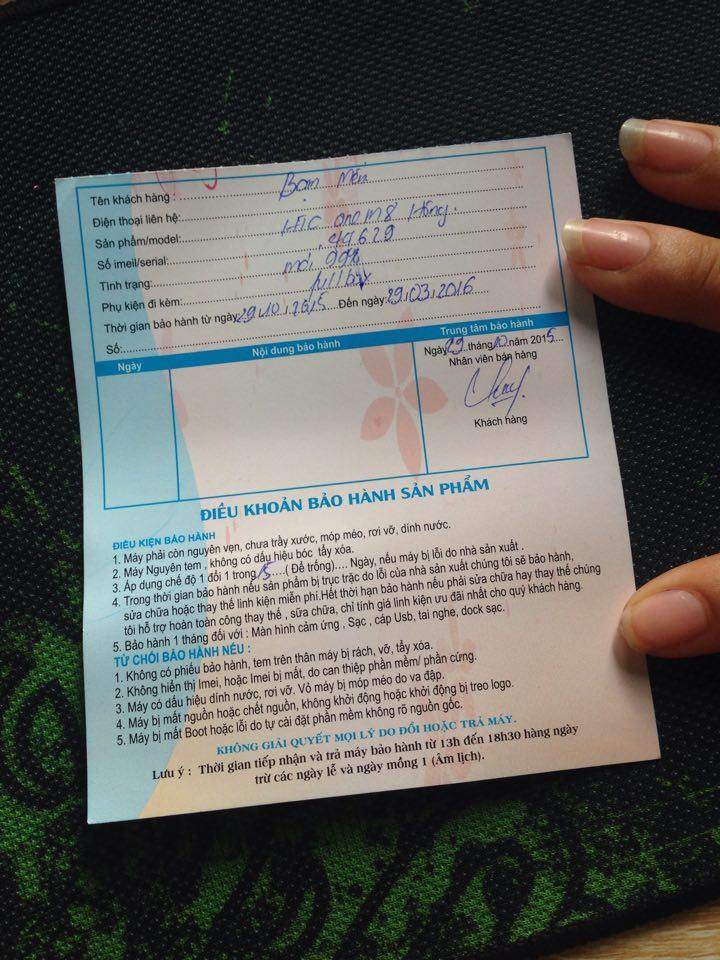 Tên khách hàng :
Bạn Mến
Điện thoại liên hệ:
Sản phẩm/model: HTC one M8 Hồng.
Số imeil/serial: 49629
Tình trạng: mới 99%
Phụ kiện đi kèm: full box
Thời gian bảo hành từ ngày 29.10.2015 Đến ngày: 29.03.2016
Số:
Ngày Nội dung bảo hành Trung tâm bảo hành
Ngày 29 tháng 10 năm 2015
Nhân viên bán hàng
Khách hàng
ĐIỀU KHOẢN BẢO HÀNH SẢN PHẨM
ĐIỀU KIỆN BẢO HÀNH
1. Máy phải còn nguyên vẹn, chưa trầy xước, móp méo, rơi vỡ, dính nước.
2. Máy Nguyên tem , không có dấu hiệu bóc tẩy xóa.
3. Áp dụng chế độ 1 đổi 1 trong 15 ....( Để trống).... Ngày, nếu máy bị lỗi do nhà sản xuất .
4. Trong thời gian bảo hành nếu sản phẩm bị trục trặc do lỗi của nhà sản xuất chúng tôi sẽ bảo hành,
sửa chữa hoặc thay thế linh kiện miễn phí.Hết thời hạn bảo hành nếu phải sửa chữa hay thay thế chúng
tôi hỗ trợ hoàn toàn công thay thế , sữa chữa, chỉ tính giá linh kiện ưu đãi nhất cho quý khách hàng.
5. Bảo hành 1 tháng đối với : Màn hình cảm ứng , Sạc , cáp Usb, tai nghe, dock sạc.
TỪ CHỐI BẢO HÀNH NẾU :
1. Không có phiếu bảo hành, tem trên thân máy bị rách, vỡ, tẩy xóa.
2. Không hiển thị Imei, hoặc Imei bị mất, do can thiệp phần mềm/ phần cứng.
3. Máy có dấu hiệu dính nước, rơi vỡ. Vỏ máy bị móp méo do va đập.
4. Máy bị mất nguồn hoặc chết nguồn, không khởi động hoặc khởi động bị treo logo.
5. Máy bị mất Boot hoặc lỗi do tự cài đặt phần mềm không rõ nguồn gốc.
KHÔNG GIẢI QUYẾT MỌI LÝ DO ĐỔI HOẶC TRẢ MÁY.
Lưu ý : Thời gian tiếp nhận và trả máy bảo hành từ 13h đến 18h30 hàng ngày
trừ các ngày lễ và ngày mồng 1 (Âm lịch).